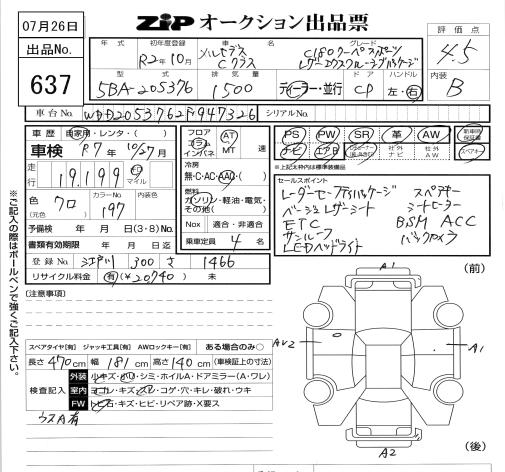 07月26日
ZIP オークション出品票
出品No.
637
年式
初年度登録
R2年10月
車名
メルセデス
Cクラス
グレード
C180クーペスポーツ
レザーエクスクルーシブパッケージ
評価点
4.5
内装
B
型式
5BA-205376
排気量
1500
ディーラー・並行
ドア
CP
ハンドル
左・右
車台No.
WDD2053762F947326
シリアルNo.
車歴 自家用・レンタ・( )
車検 R7年10/27月
走行 19,199 km マイル
色 クロ
(元色)
カラーNo.
197
内装色
予備検 年 月 日(3・8)No.
書類有効期限 年 月 日迄
登録No. 江戸川 300 さ 1466
リサイクル料金 有(¥20740) 未
フロア
コラム
インパネ
AT
MT 速
冷房
無・C・AC・AAC・( )
燃料
ガソリン・軽油・電気・
その他( )
Nox 適合・非適合
乗車定員 4 名
PS PW SR 革 AW 新車時保証書
ナビ エアB 社外ナビ 社外AW スペアキー
※上記太枠内は標準装備品
セールスポイント
レーダーセーフティパッケージ スペアキー
ベージュレザーシート シートヒーター
ETC BSM ACC
サンルーフ バックカメラ
LEDヘッドライト
[注意事項]
スペアタイヤ[有] ジャッキ工具[有] AWロックキー[有] ある場合のみ○
長さ 470 cm 幅 181 cm 高さ 140 cm (車検証上の寸法)
検査記入
外装 小キズ・ヘコ・シミ・ホイルA・ドアミラー(A・ワレ)
室内 ヨゴレ・キズ・スレ・コゲ・穴・キレ・破れ・ウキ
FW トビ石・キズ・ヒビ・リペア跡・X要ス
ウスA有
A1
(前)
AU2
A1
A2
(後)
※ご記入の際はボールペンで強くご記入下さい。